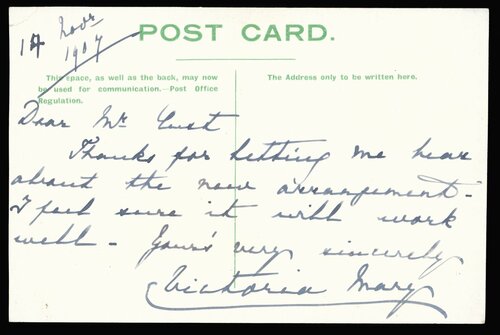 14 Novr
1907
POST CARD.
This space, as well as the back, may now
be used for communication.—Post Office
Regulation.
The Address only to be written here.
Dear Mr Cust
Thanks for letting me hear
about the new arrangement -
I feel sure it will work
well - Yours very sincerely
Victoria Mary